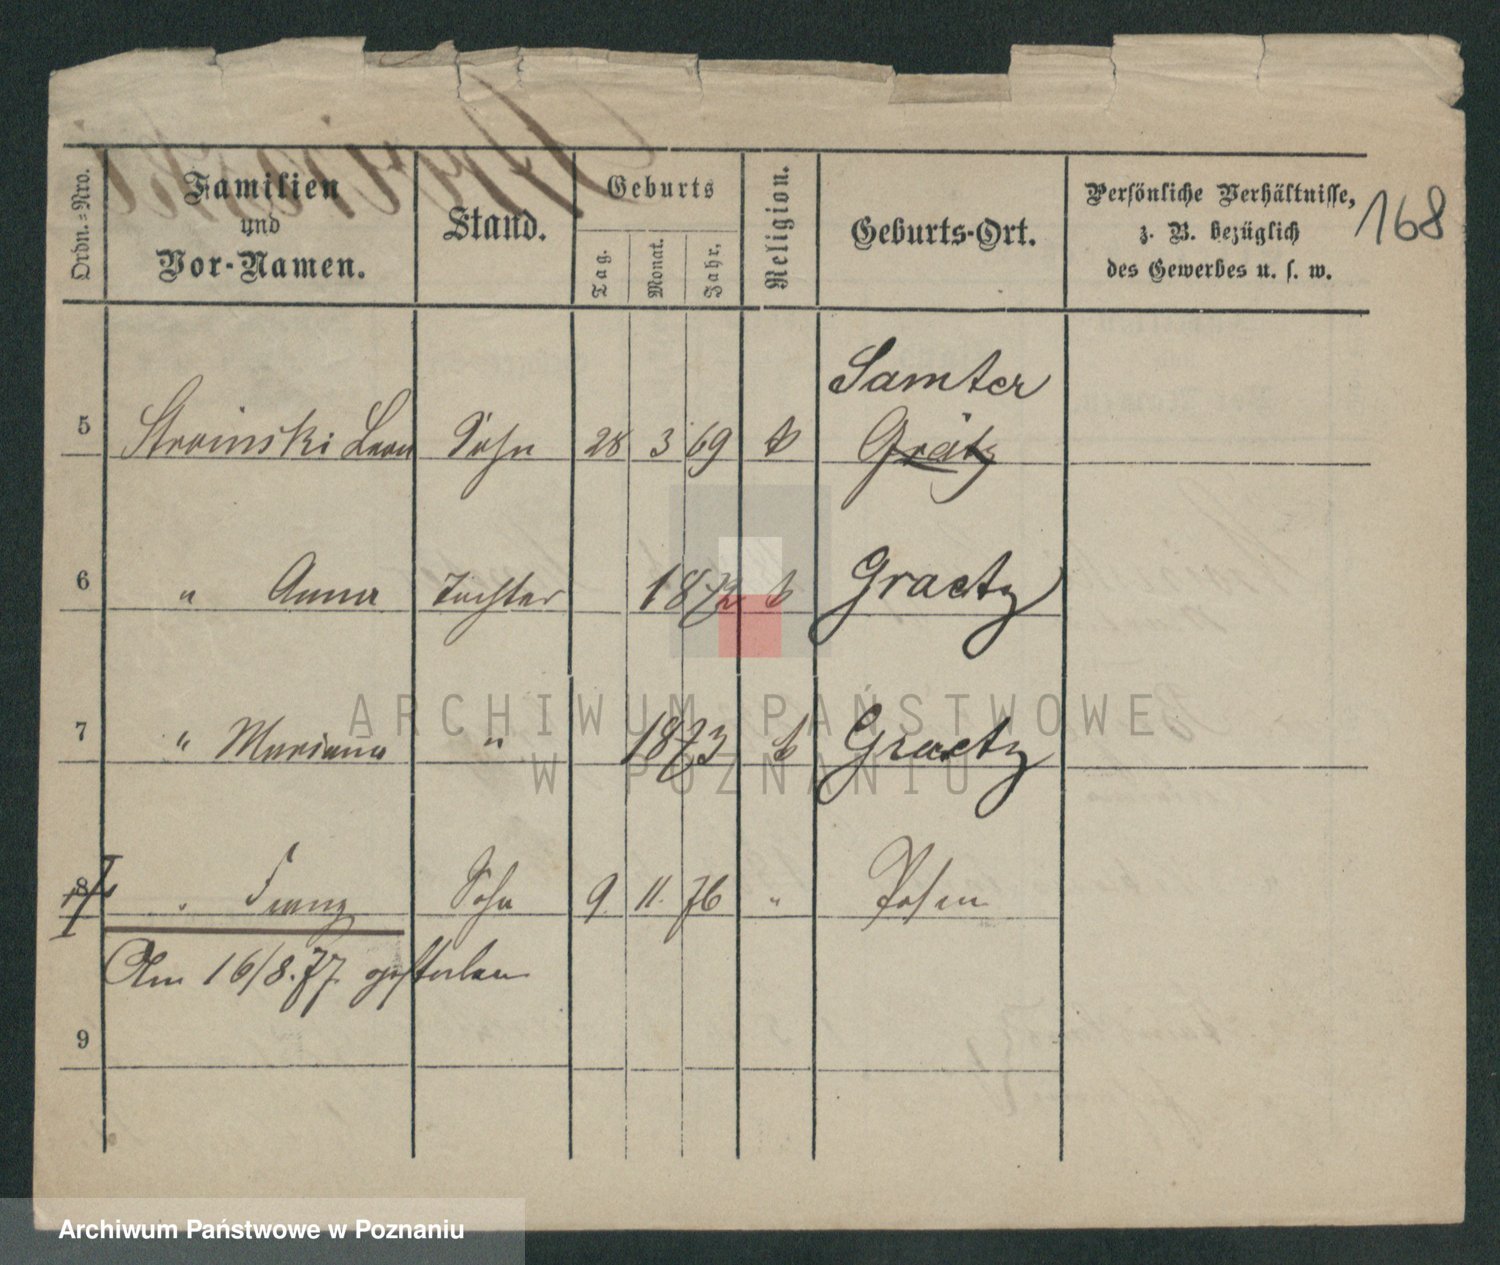 Ordn.-Nro.
Familien
und
Vor-Namen.
Stand.
Geburts
Tag.
Monat.
Jahr.
Religion.
Geburts-Ort.
Persönliche Verhältnisse,
z. B. bezüglich
des Gewerbes u. s. w.
168
Samter
5 Stroinski Leon Sohn 28 3 69 k Grätz
6 " Anna Tochter 1872 k Graetz
7 " Mariana " 1873 k Graetz
8 " Franz Sohn 9 11. 76 " Posen
Am 16/8.77. gestorben
9
ARCHIWUM PAŃSTWOWE
W POZNANIU
Archiwum Państwowe w Poznaniu